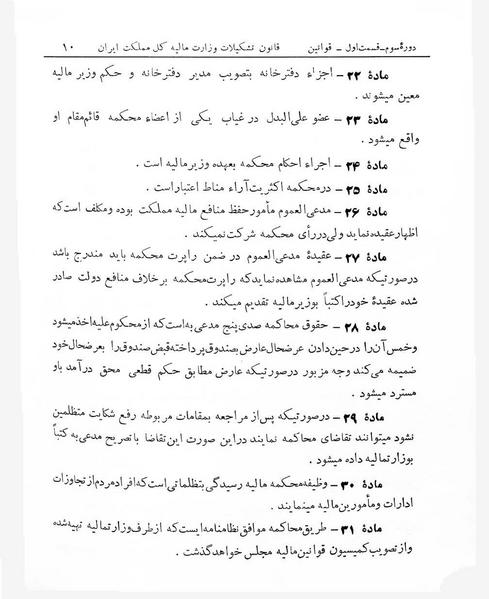 دورهٔ سوم – قسمت اول – قوانین قانون تشکیلات وزارت مالیه کل مملکت ایران ۱۰
مادهٔ ۲۲ – اجزاء دفترخانه بتصویب مدیر دفترخانه و حکم وزیر مالیه
معین میشوند .
مادهٔ ۲۳ – عضو علی‌البدل در غیاب یکی از اعضاء محکمه قائم‌مقام او
واقع میشود .
مادهٔ ۲۴ – اجراء احکام محکمه بعهده وزیر مالیه است .
مادهٔ ۲۵ – در محکمه اکثریت آراء مناط اعتبار است .
مادهٔ ۲۶ – مدعی‌العموم مأمور حفظ منافع مالیه مملکت بوده و مکلف است که
اظهار عقیده نماید ولی در رأی محکمه شرکت نمیکند .
مادهٔ ۲۷ – عقیدهٔ مدعی‌العموم در ضمن راپرت محکمه باید مندرج باشد
در صورتیکه مدعی‌العموم مشاهده نماید که راپرت محکمه بر خلاف منافع دولت صادر
شده عقیدهٔ خود را کتباً بوزیر مالیه تقدیم میکند .
مادهٔ ۲۸ – حقوق محاکمه صدی پنج مدعی به است که از محکوم علیه اخذ میشود
و خمس آن را در حین دادن عرضحال عارض بصندوق پرداخته قبض صندوق را بعرضحال خود
ضمیمه می کند وجه مزبور در صورتیکه عارض مطابق حکم قطعی محق درآمد باو
مسترد میشود .
مادهٔ ۲۹ – در صورتیکه پس از مراجعه بمقامات مربوطه رفع شکایت متظلمین
نشود میتوانند تقاضای محاکمه نمایند در این صورت این تقاضا با تصریح مدعی به کتباً
بوزارت مالیه داده میشود .
مادهٔ ۳۰ – وظیفه محکمه مالیه رسیدگی بتظلماتی است که افراد مردم از تجاوزات
ادارات و مأمورین مالیه مینمایند .
مادهٔ ۳۱ – طریق محاکمه موافق نظامنامه ایست که از طرف وزارت مالیه تهیه شده
و از تصویب کمیسیون قوانین مالیه مجلس خواهد گذشت .